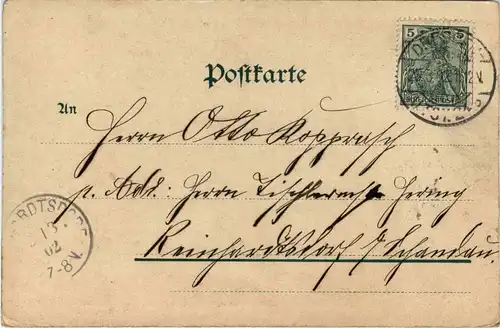 5
DRES
12V.
Postkarte
An
Herrn Otto Kopprasch
p. Add: Herrn Tischlermstr Hering
Reinhardtsdorf b/Schandau.
RDTSDORF
02
7-8V.